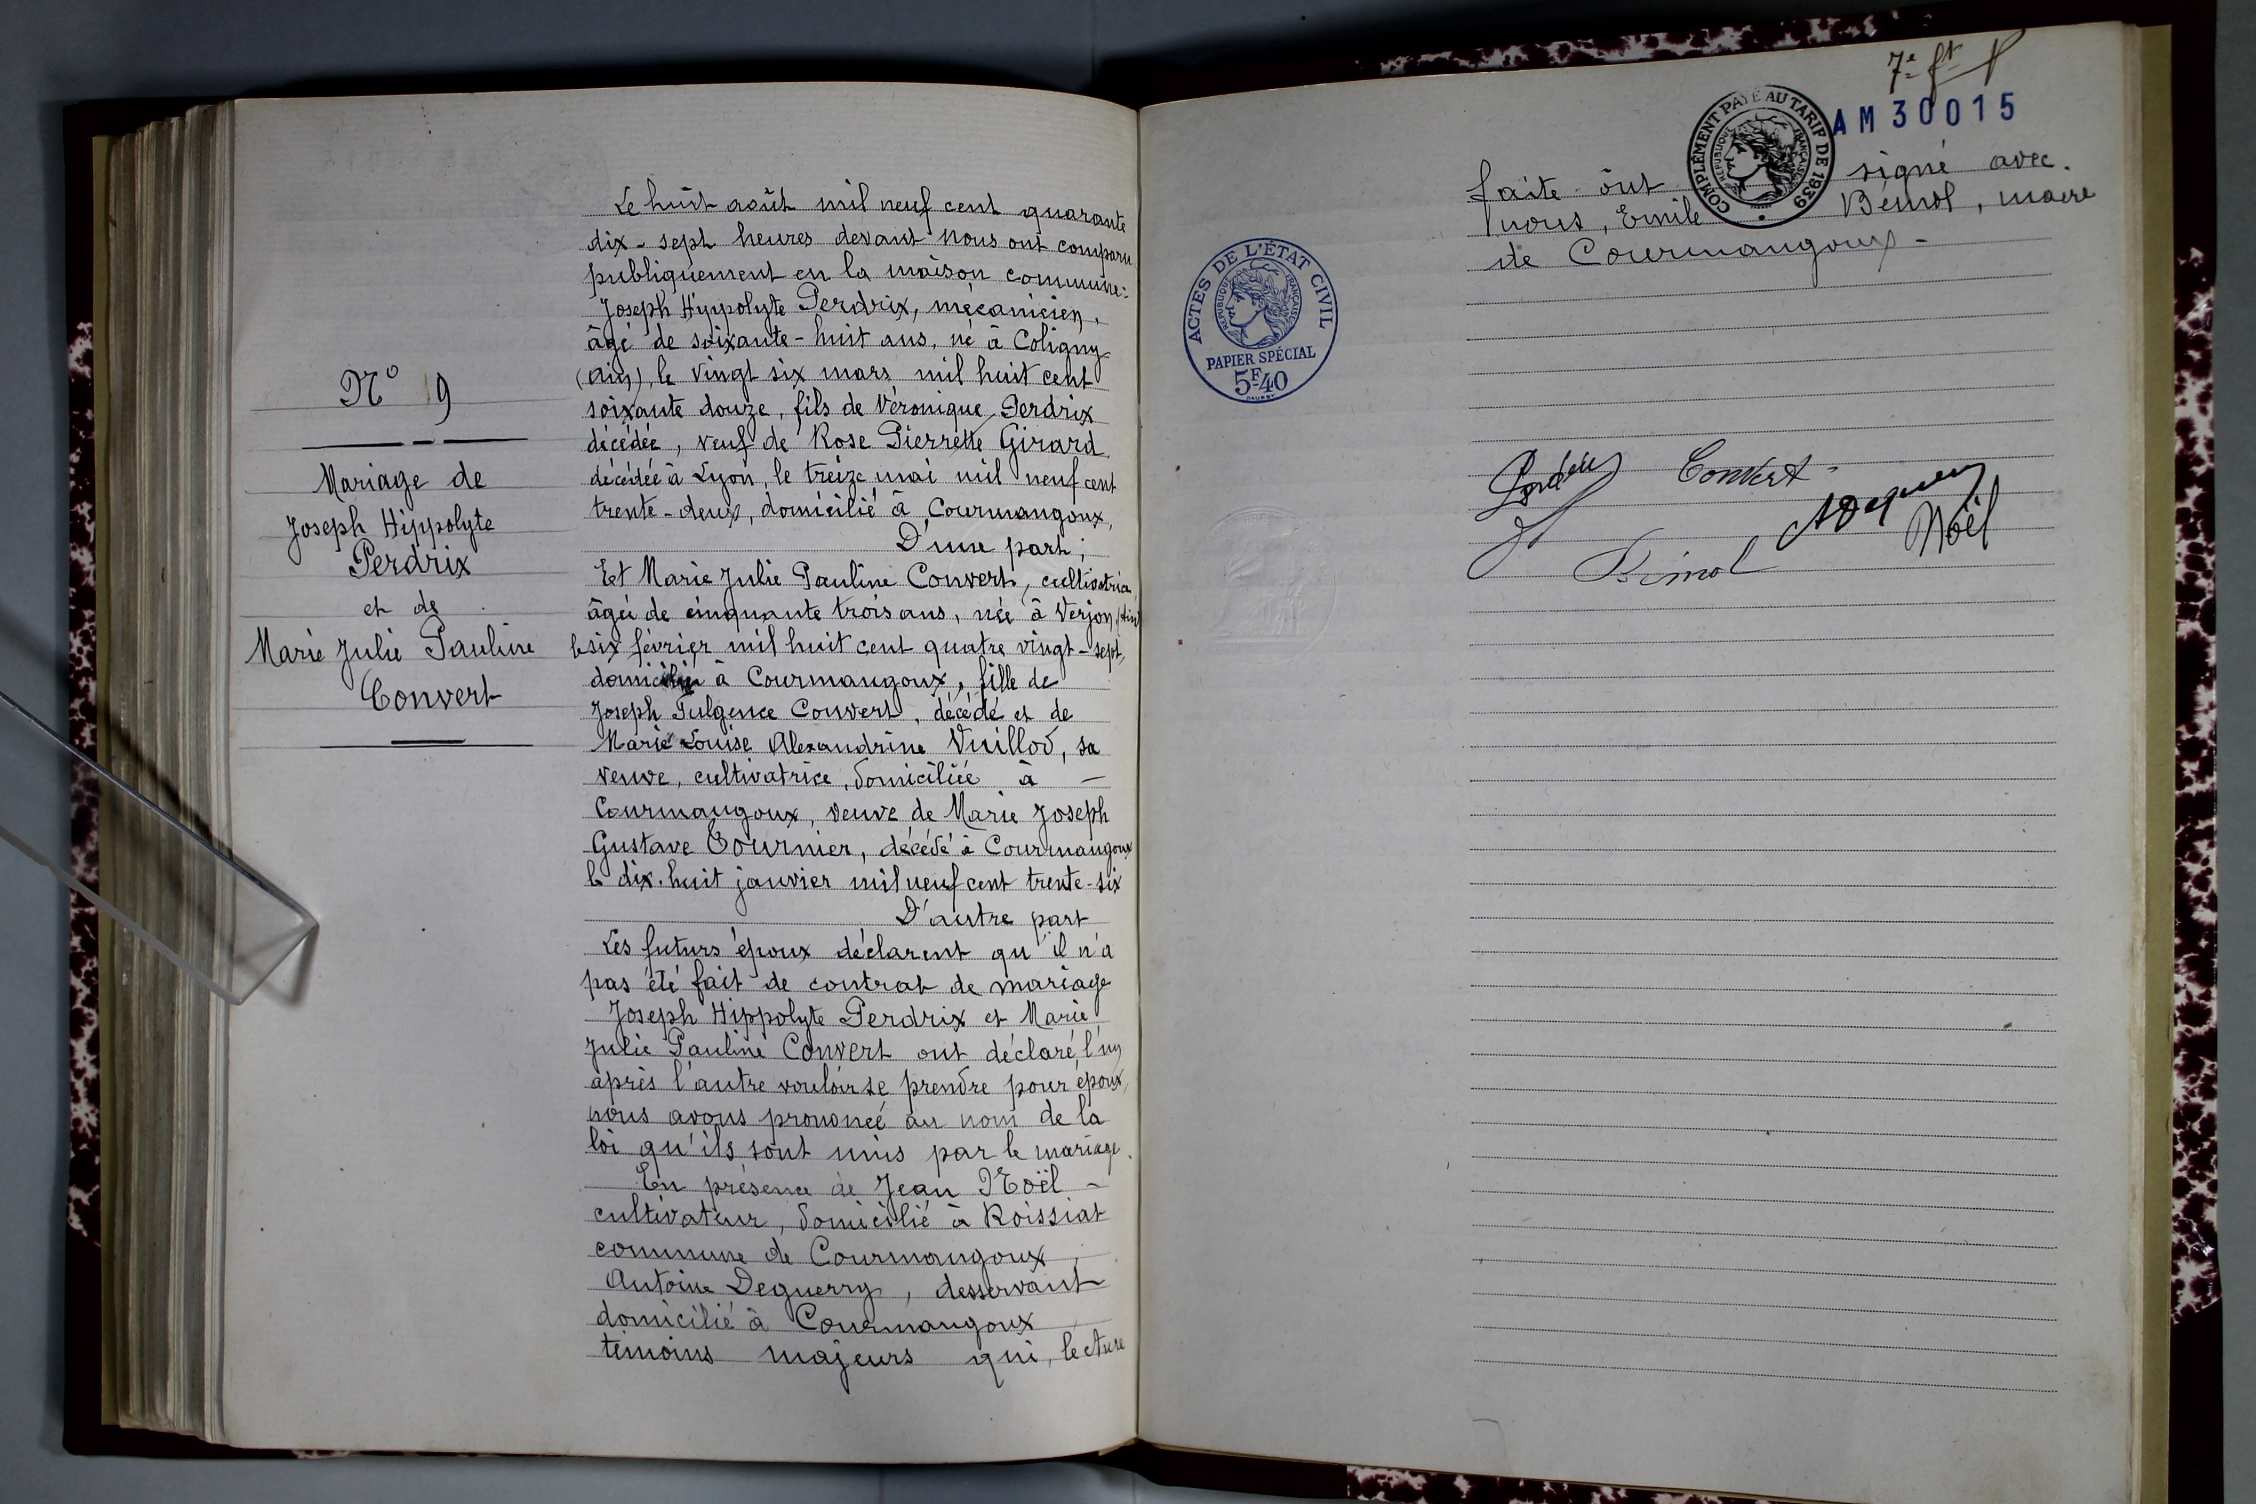 N° 9
Mariage de
Joseph Hippolyte
Perdrix
et de
Marie Julie Pauline
Convert
Le huit août mil neuf cent quarante
dix-sept heures devant Nous ont comparu
publiquement en la maison commune:
Joseph Hippolyte Perdrix, mécanicien,
âgé de soixante-huit ans, né à Coligny
(Ain), le vingt six mars mil huit cent
soixante douze, fils de Véronique Perdrix
décédée, veuf de Rose Pierrette Girard
décédée à Lyon, le treize mai mil neuf cent
trente-deux, domicilié à Courmangoux,
D'une part;
Et Marie Julie Pauline Convert, cultivatrice,
âgée de cinquante trois ans, née à Verjon (Ain)
le six février mil huit cent quatre vingt-sept,
domiciliée à Courmangoux, fille de
Joseph Fulgence Convert, décédé et de
Marie Louise Alexandrine Vuillod, sa
veuve, cultivatrice, domiciliée à —
Courmangoux, veuve de Marie Joseph
Gustave Tournier, décédé à Courmangoux
le dix-huit janvier mil neuf cent trente-six
D'autre part
Les futurs époux déclarent qu'il n'a
pas été fait de contrat de mariage
Joseph Hippolyte Perdrix et Marie
Julie Pauline Convert ont déclaré l'un
après l'autre vouloir se prendre pour époux,
nous avons prononcé au nom de la
loi qu'ils sont unis par le mariage.
En présence de Jean Noël -
cultivateur, domicilié à Roissiat
commune de Courmangoux
Antoine Deguerry, desservant
domicilié à Courmangoux
témoins majeurs qui, lecture
7e
AM30015
COMPLÉMENT PAYÉ AU TARIF DE 1939
RÉPUBLIQUE FRANÇAISE
faite ont signé avec
nous, Emile Bémol, maire
de Courmangoux-
ACTES DE L'ÉTAT CIVIL
RÉPUBLIQUE FRANÇAISE
PAPIER SPÉCIAL
5F40
Perdrix Convert
ADeguerry
Noël
Bémol